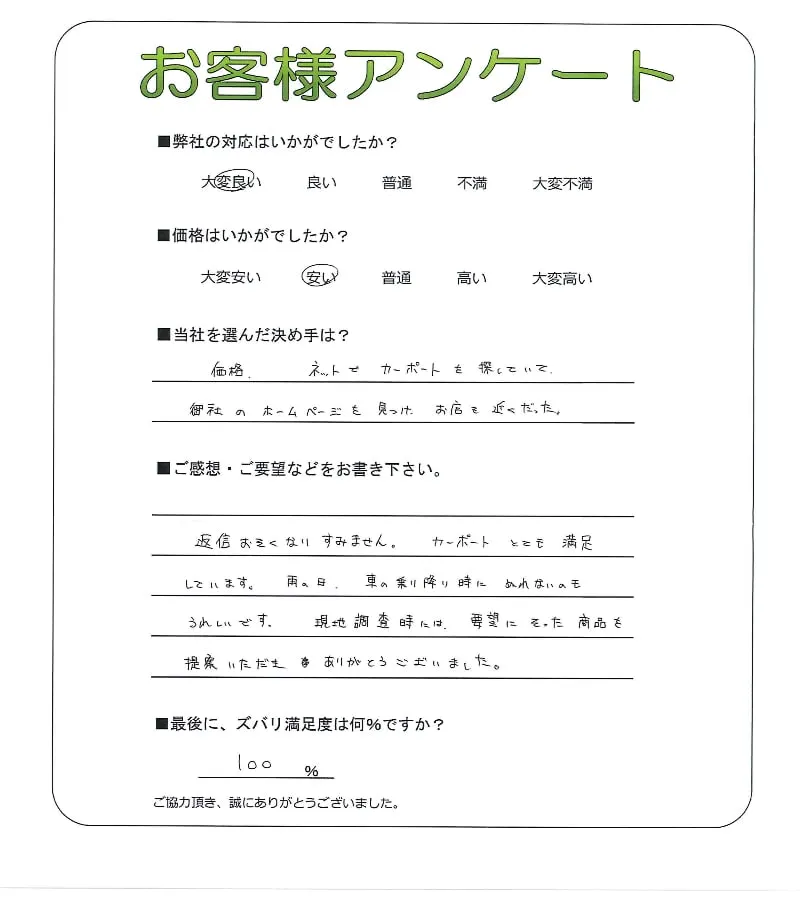 お客様アンケート
■弊社の対応はいかがでしたか？
大変良い 良い 普通 不満 大変不満
■価格はいかがでしたか？
大変安い 安い 普通 高い 大変高い
■当社を選んだ決め手は？
価格、 ネットで カーポートを探していて、
御社のホームページを見つけ お店も近くだった。
■ご感想・ご要望などをお書き下さい。
返信おそくなりすみません。 カーポートとても満足
しています。 雨の日、車の乗り降り時に ぬれないのも
うれしいです。 現地調査時には、要望にそった商品を
提案いただき ありがとうございました。
■最後に、ズバリ満足度は何%ですか？
100 %
ご協力頂き、誠にありがとうございました。